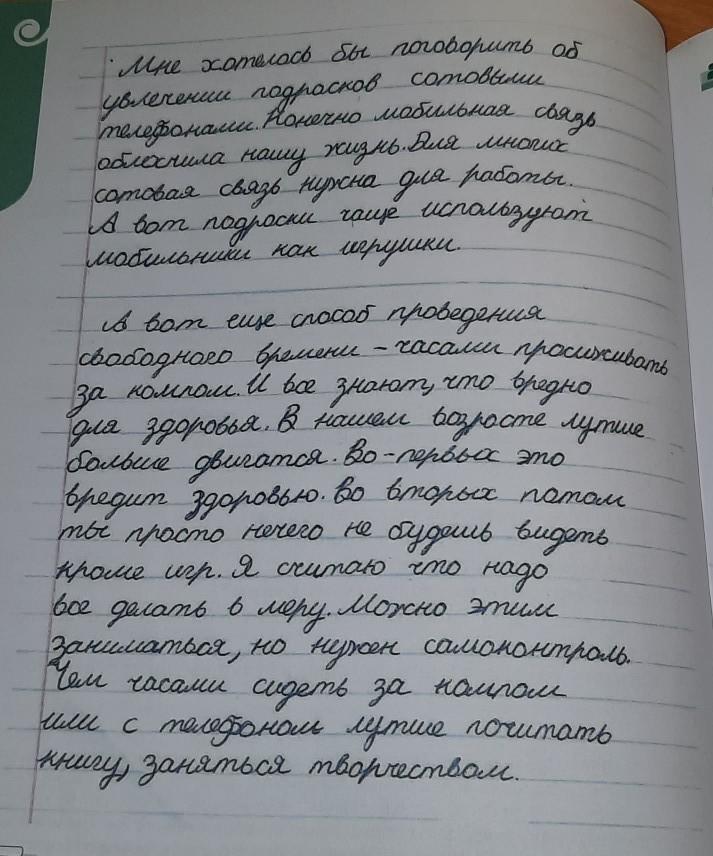 Мне хотелось бы поговорить об
увлечении подрасков сотовыми
телефонами. Конечно мобильная связь
облехчила нашу жизнь. Для многих
сотовая связь нужна для работы.
А вот подроски чаще используют
мобильники как игрушки.
А вот еще способ проведения
свабодного времени – часами просиживать
за компом. И все знают, что вредно
для здоровья. В нашем возросте лутше
больше двигатся. Во-первых это
вредит здоровью. Во вторых патом
ты просто нечего не будешь видеть
кроме игр. Я считаю что надо
все делать в меру. Можно этим
заниматься, но нужен самоконтроль.
Чем часами сидеть за компом
или с телефоном лутше почитать
книгу, заняться творчеством.